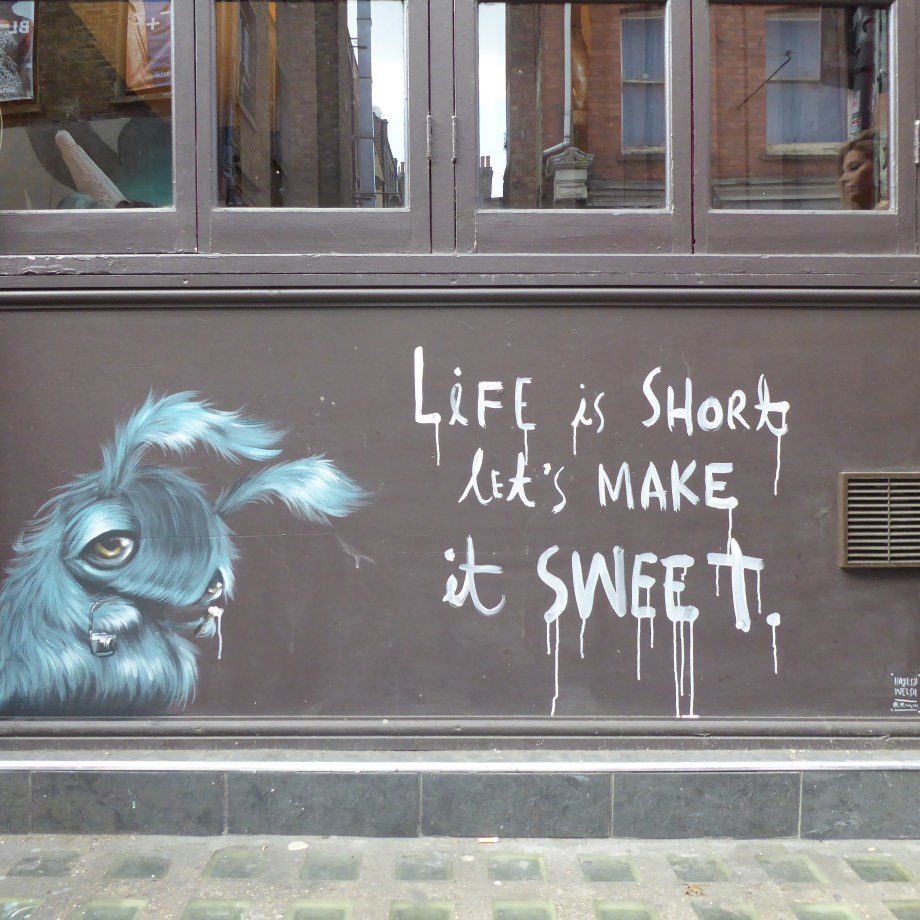 LiFE is SHORt
LEt's MAKE
it SWEET.
WELSH